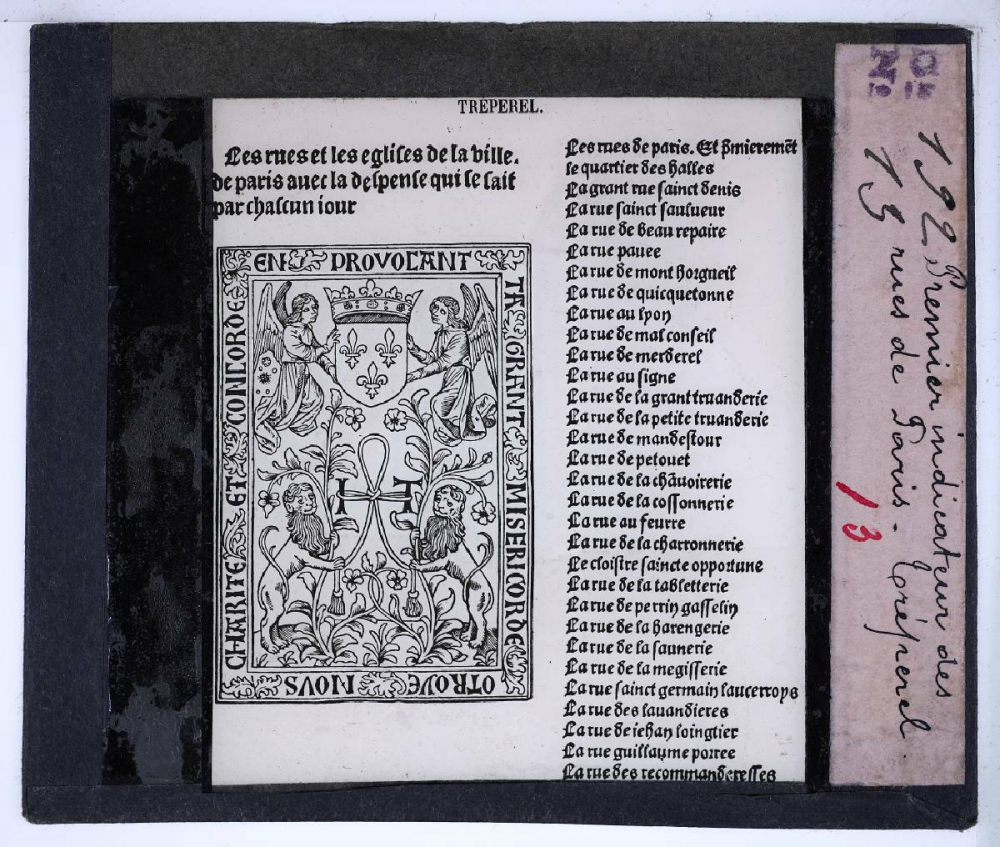 TRÉPEREL.
Les rues et les eglises de la ville.
de paris auec la despense qui se fait
par chascun iour
EN PROVOCANT
TA GRANT MISERICORDE
OTROYE NOVS
CHARITE ET CONCORDE
I T
Les rues de paris. Et p̄mieremēt
le quartier des halles
La grant rue sainct denis
La rue sainct saulueur
La rue de beau repaire
La rue pauee
La rue de mont horgueil
La rue de quicquetonne
La rue au lyon
La rue de mal conseil
La rue de merderel
La rue au signe
La rue de la grant truanderie
La rue de la petite truanderie
La rue de mandestour
La rue de petouet
La rue de la chāuoirerie
La rue de la cossonnerie
La rue au feurre
La rue de la charronnerie
Le cloistre saincte opportune
La rue de la tabletterie
La rue de perrin gasselin
La rue de la harengerie
La rue de la saunerie
La rue de la megisserie
La rue sainct germain laucerroys
La rue des lauandieres
La rue de iehan loingtier
La rue guillaume porree
La rue des recommanderesses
Di
N°
192 Premier indicateur des
15 rues de Paris - Tréperel.
13